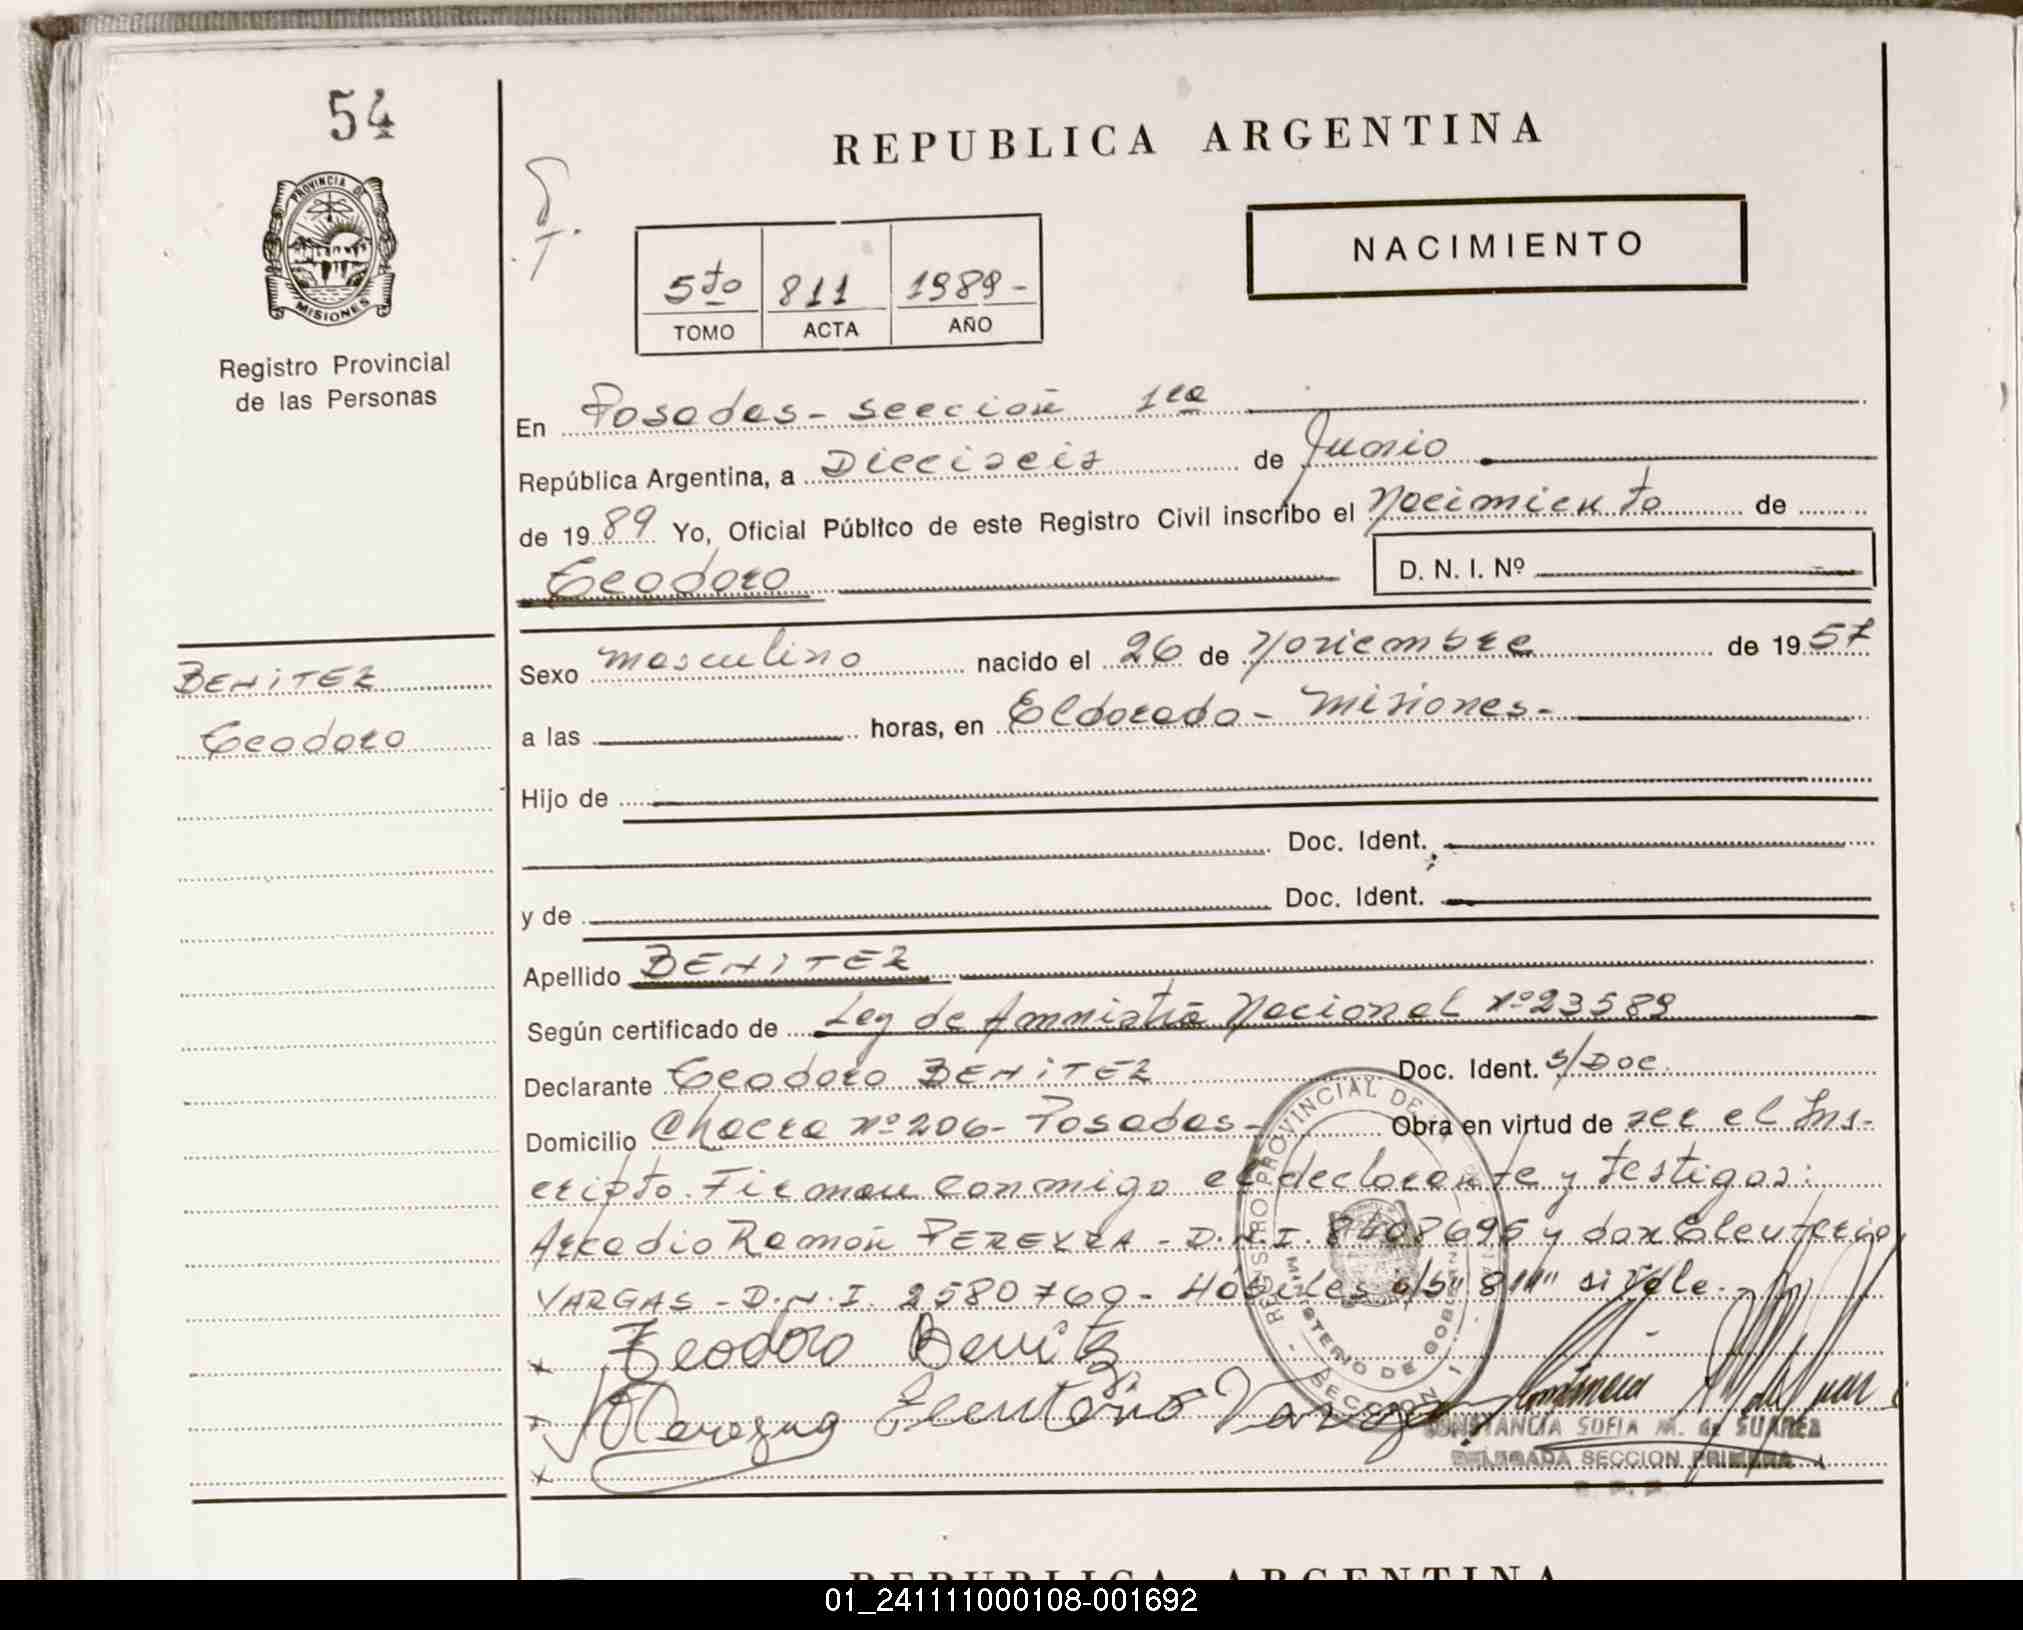 54
PROVINCIA DE
MISIONES
Registro Provincial
de las Personas
REPUBLICA ARGENTINA
NACIMIENTO
5to 811 1989-
TOMO ACTA AÑO
En Posadas - sección 1ra
República Argentina, a Dieciseis de Junio
de 1989 Yo, Oficial Público de este Registro Civil inscribo el Nacimiento de
Teodoro D. N. I. Nº
Sexo masculino nacido el 26 de Noviembre de 1957
BENITEZ
Teodoro
a las horas, en Eldorado - Misiones-
Hijo de
Doc. Ident.
y de Doc. Ident.
Apellido BENITEZ
Según certificado de Ley de Amnistia Nacional Nº 23589
Declarante Teodoro BENITEZ Doc. Ident. S/Doc.
Domicilio Chacra nº 206- Posadas- Obra en virtud de ser el Ins-
cripto. Firman conmigo el declarante y testigos:
Arcadio Ramón PEREYRA - D.N.I. 8408695 y don Eleuterio
VARGAS - D.N.I. 2580769 - Hábiles o/s" 811" si vale.-
x Teodoro Benitz
Eleuterio Vargas
x
REGISTRO PROVINCIAL DE
MINISTERIO DE GOBIERNO
SECCION 1
CONSTANCIA SOFIA M. de SUAREZ
DELEGADA SECCION PRIMERA
REPUBLICA ARGENTINA
01_241111000108-001692